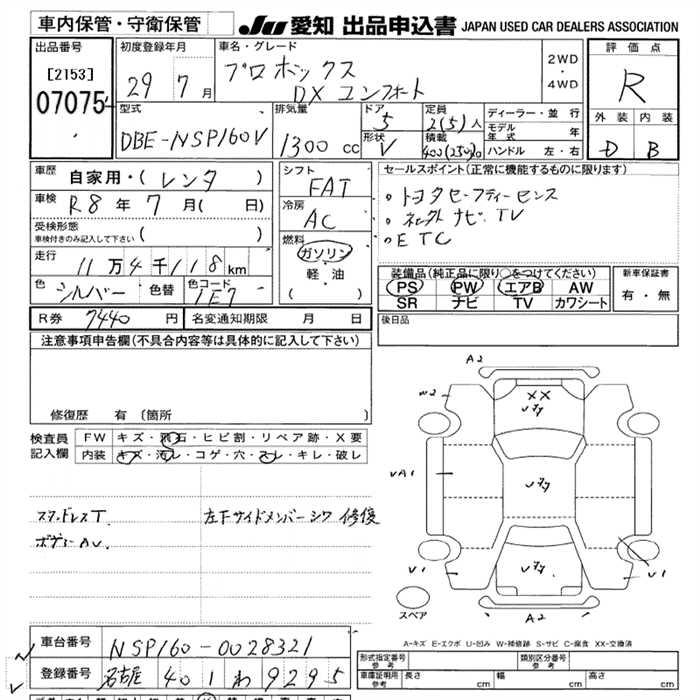 車内保管・守衛保管 JU 愛知 出品申込書 JAPAN USED CAR DEALERS ASSOCIATION
出品番号
[2153]
07075
初度登録年月
29 7 月
車名・グレード
プロボックス
DX コンフォート
2WD
・
4WD
評価点
R
外装 内装
D B
型式
DBE-NSP160V
排気量
1300 cc
ドア
5
形状
V
定員
2(5)人
積載
400(250)
ディーラー・並行
モデル年式 年
ハンドル 左・右
車歴
自家用・(レンタ)
車検
R8 年 7 月( 日)
受検形態
車検付きのみ記入して下さい( )
走行
11万4千118km
色 シルバー 色替 色コード 1E7
シフト
FAT
冷房
AC
燃料
ガソリン
軽・油
( )
セールスポイント(正常に機能するものに限ります)
・トヨタセーフティーセンス
・社外ナビ TV
・ETC
装備品(純正品に限り○をつけてください)
PS PW エアB AW
SR ナビ TV カワシート
新車保証書
有・無
R券 7440 円 名変通知期限 月 日
後日品
注意事項申告欄(不具合内容等は具体的に記入して下さい)
修復歴 有 (箇所
検査員
記入欄
FW キズ・飛石・ヒビ割・リペア跡・X要
内装 キズ・汚レ・コゲ・穴・スレ・キレ・破レ
スタッドレスT
ボデーAV.
左下サイドメンバーシワ修復
A2
W2
XX
V1
A2
VA1
V1
スペア
A-キズ E-エクボ U-凹み W-補修跡 S-サビ C-腐食 XX-交換済
車台番号 NSP160-0028321
登録番号 名古屋 401 わ 9295
形式指定番号
参考
類別区分番号
参考
車庫証明用
参考
長さ cm 幅 cm 高さ cm